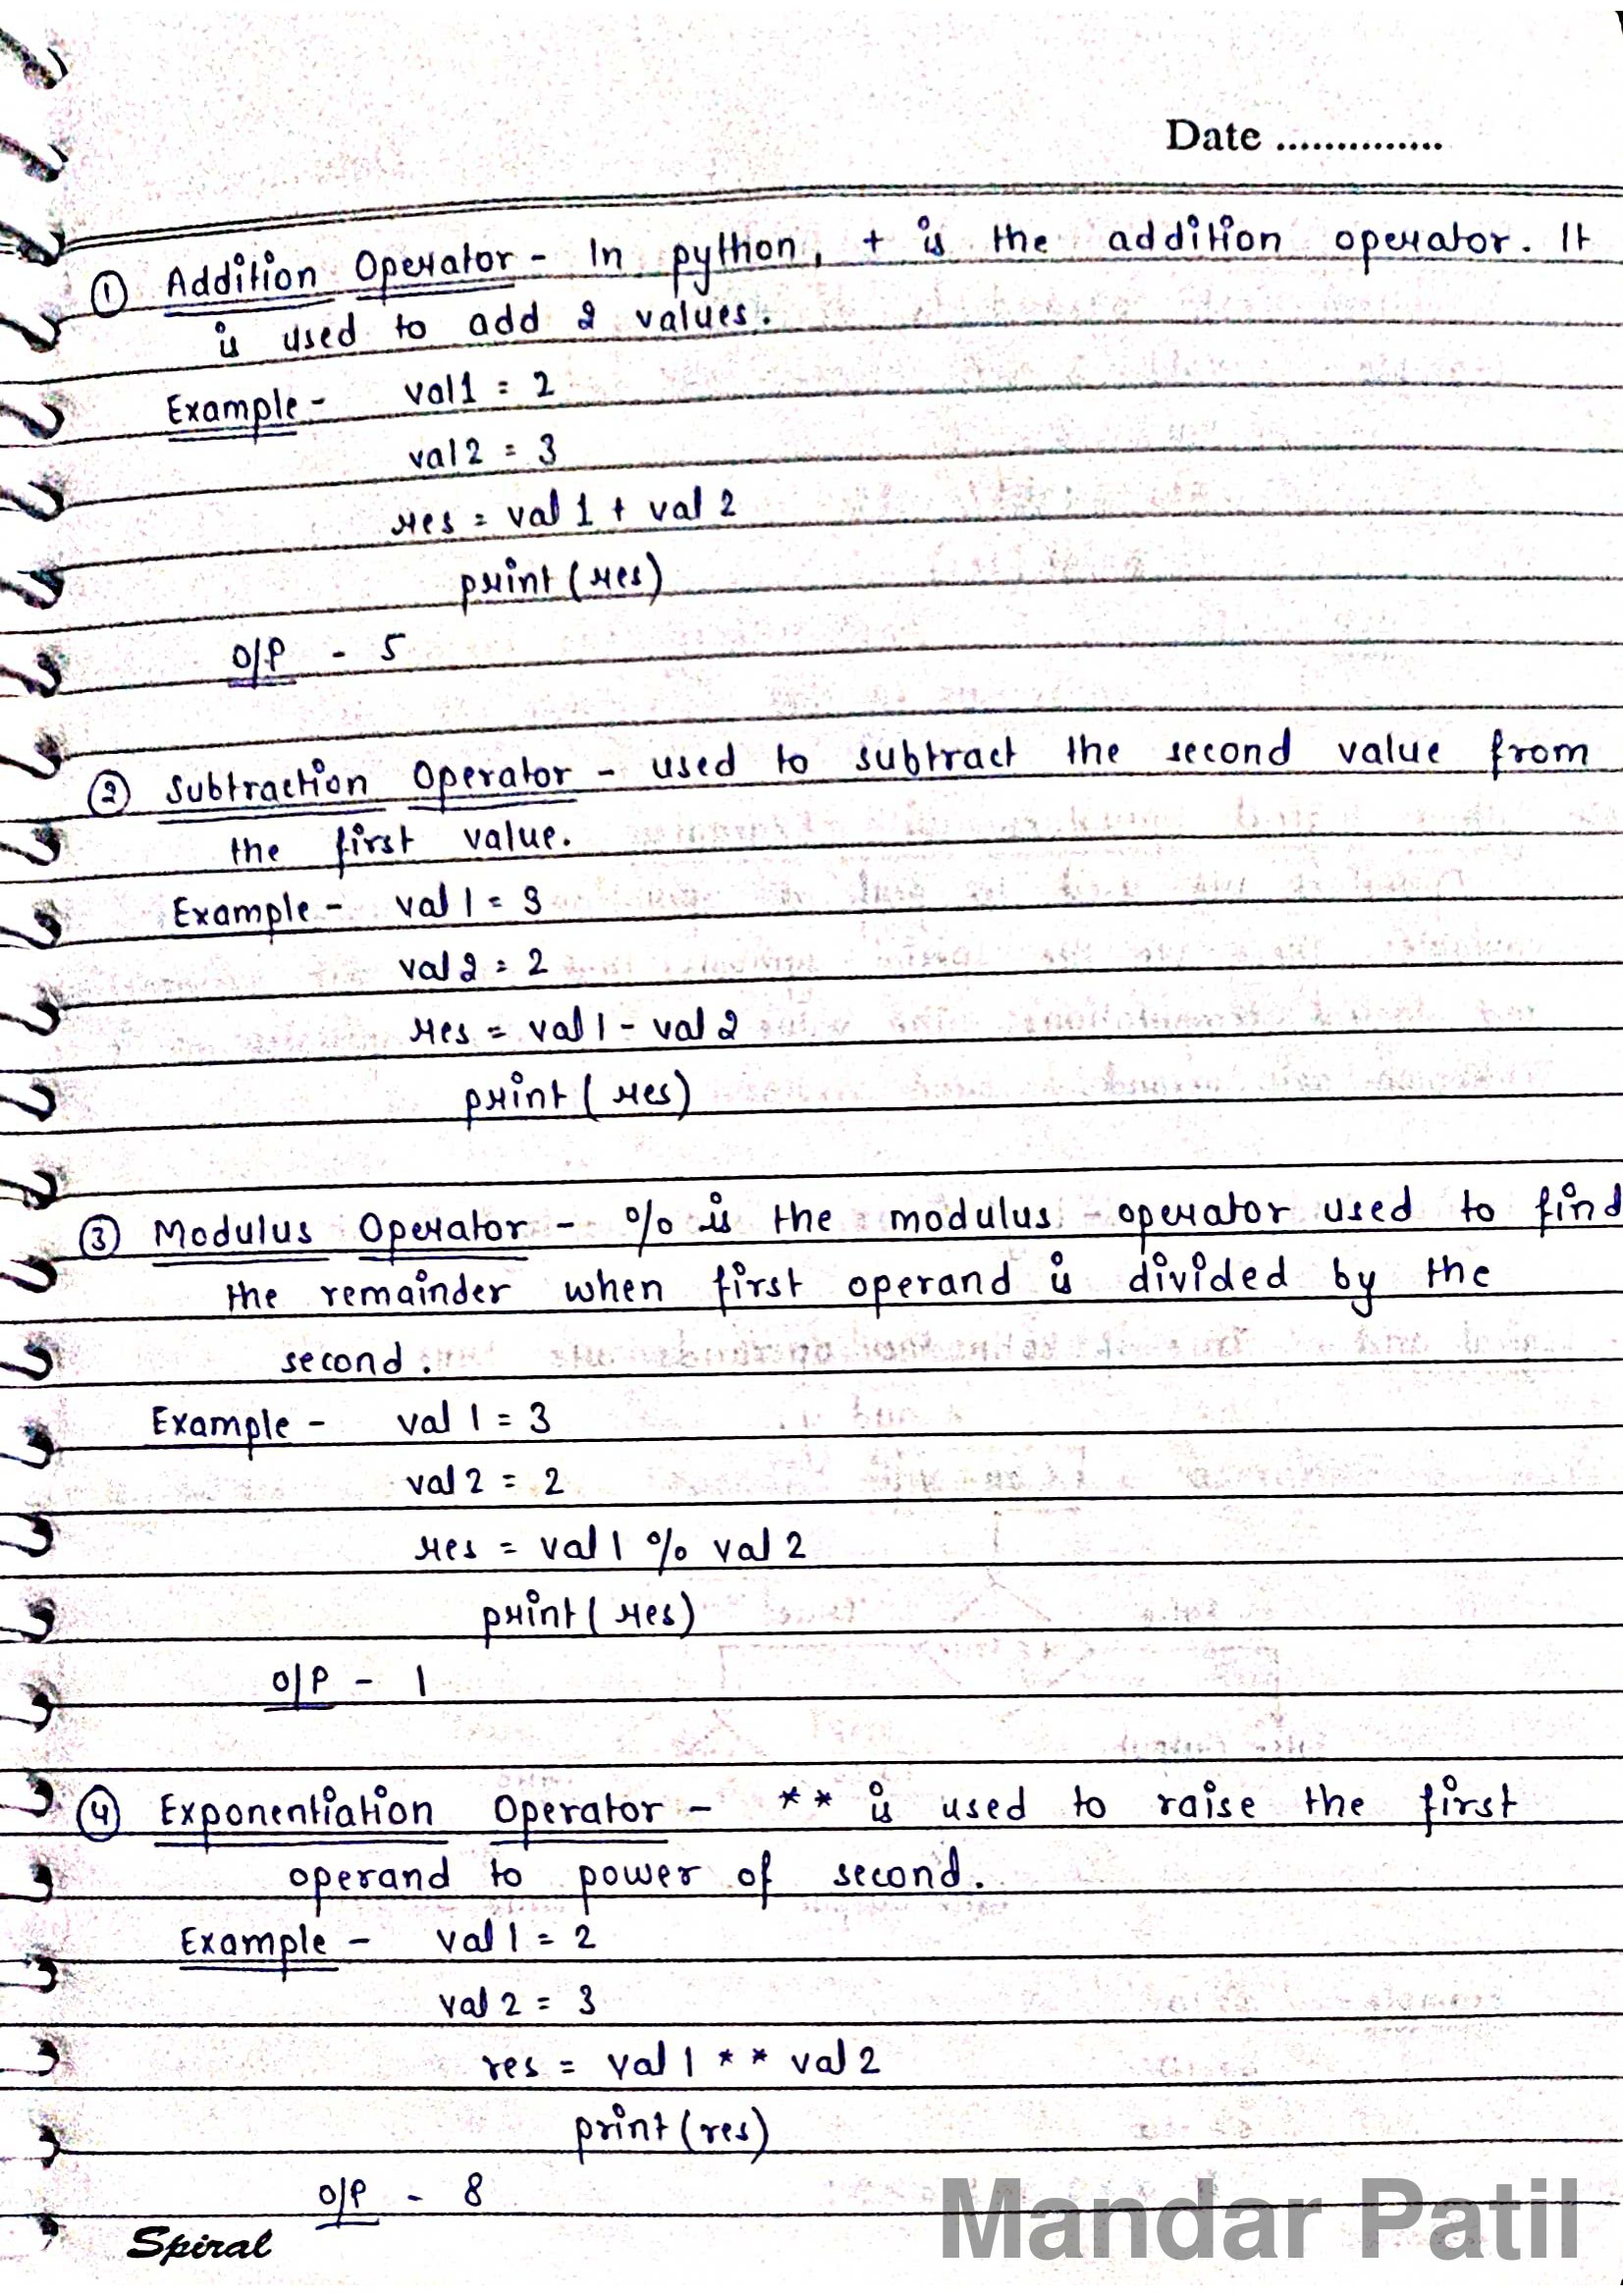 Date ..............
① Addition Operator - In python, + is the addition operator. It
is used to add 2 values.
Example - val1 = 2
val2 = 3
res = val 1 + val 2
print (res)
O/P - 5
② Subtraction Operator - used to subtract the second value from
the first value.
Example - val 1 = 3
val 2 = 2
res = val 1 - val 2
print ( res)
③ Modulus Operator - % is the modulus operator used to find
the remainder when first operand is divided by the
second.
Example - val 1 = 3
val 2 = 2
res = val 1 % val 2
print ( res)
O/P - 1
④ Exponentiation Operator - ** is used to raise the first
operand to power of second.
Example - val 1 = 2
val 2 = 3
res = val 1 ** val 2
print (res)
O/P - 8
Spiral
Mandar Patil